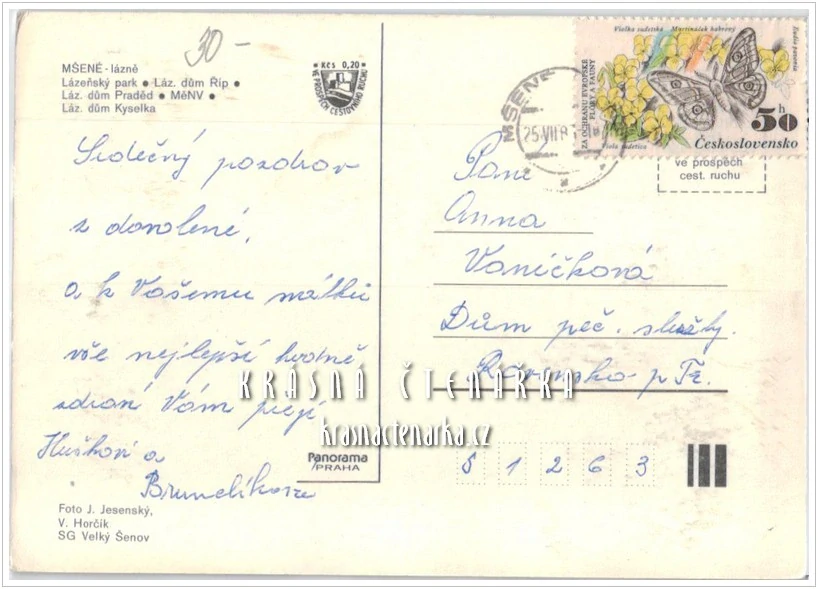 30-
MŠENÉ - lázně
Lázeňský park ● Láz. dům Říp ●
Láz. dům Praděd ● MěNV ●
Láz. dům Kyselka
Kčs 0,20
VE PROSPĚCH CESTOVNÍHO RUCHU
Srdečný pozdrav
z dovolené,
a k Vašemu svátku
vše nejlepší hodně
zdraví Vám přejí
a
Panorama
PRAHA
Foto J. Jesenský,
V. Horčík
SG Velký Šenov
MŠENÉ
25.VII.8
Violka sudetská Martináček habrový
Eudia pavonia
ZA OCHRANU EVROPSKÉ
FLÓRY A FAUNY
Viola sudetica
50 h
Československo
ve prospěch
cest. ruchu
Paní
Anna
Vaníčková
Dům peč. služby.
Rovensko p Tr.
5 1 2 6 3
KRÁSNÁ ČTENÁŘKA
krasnactenarka.cz